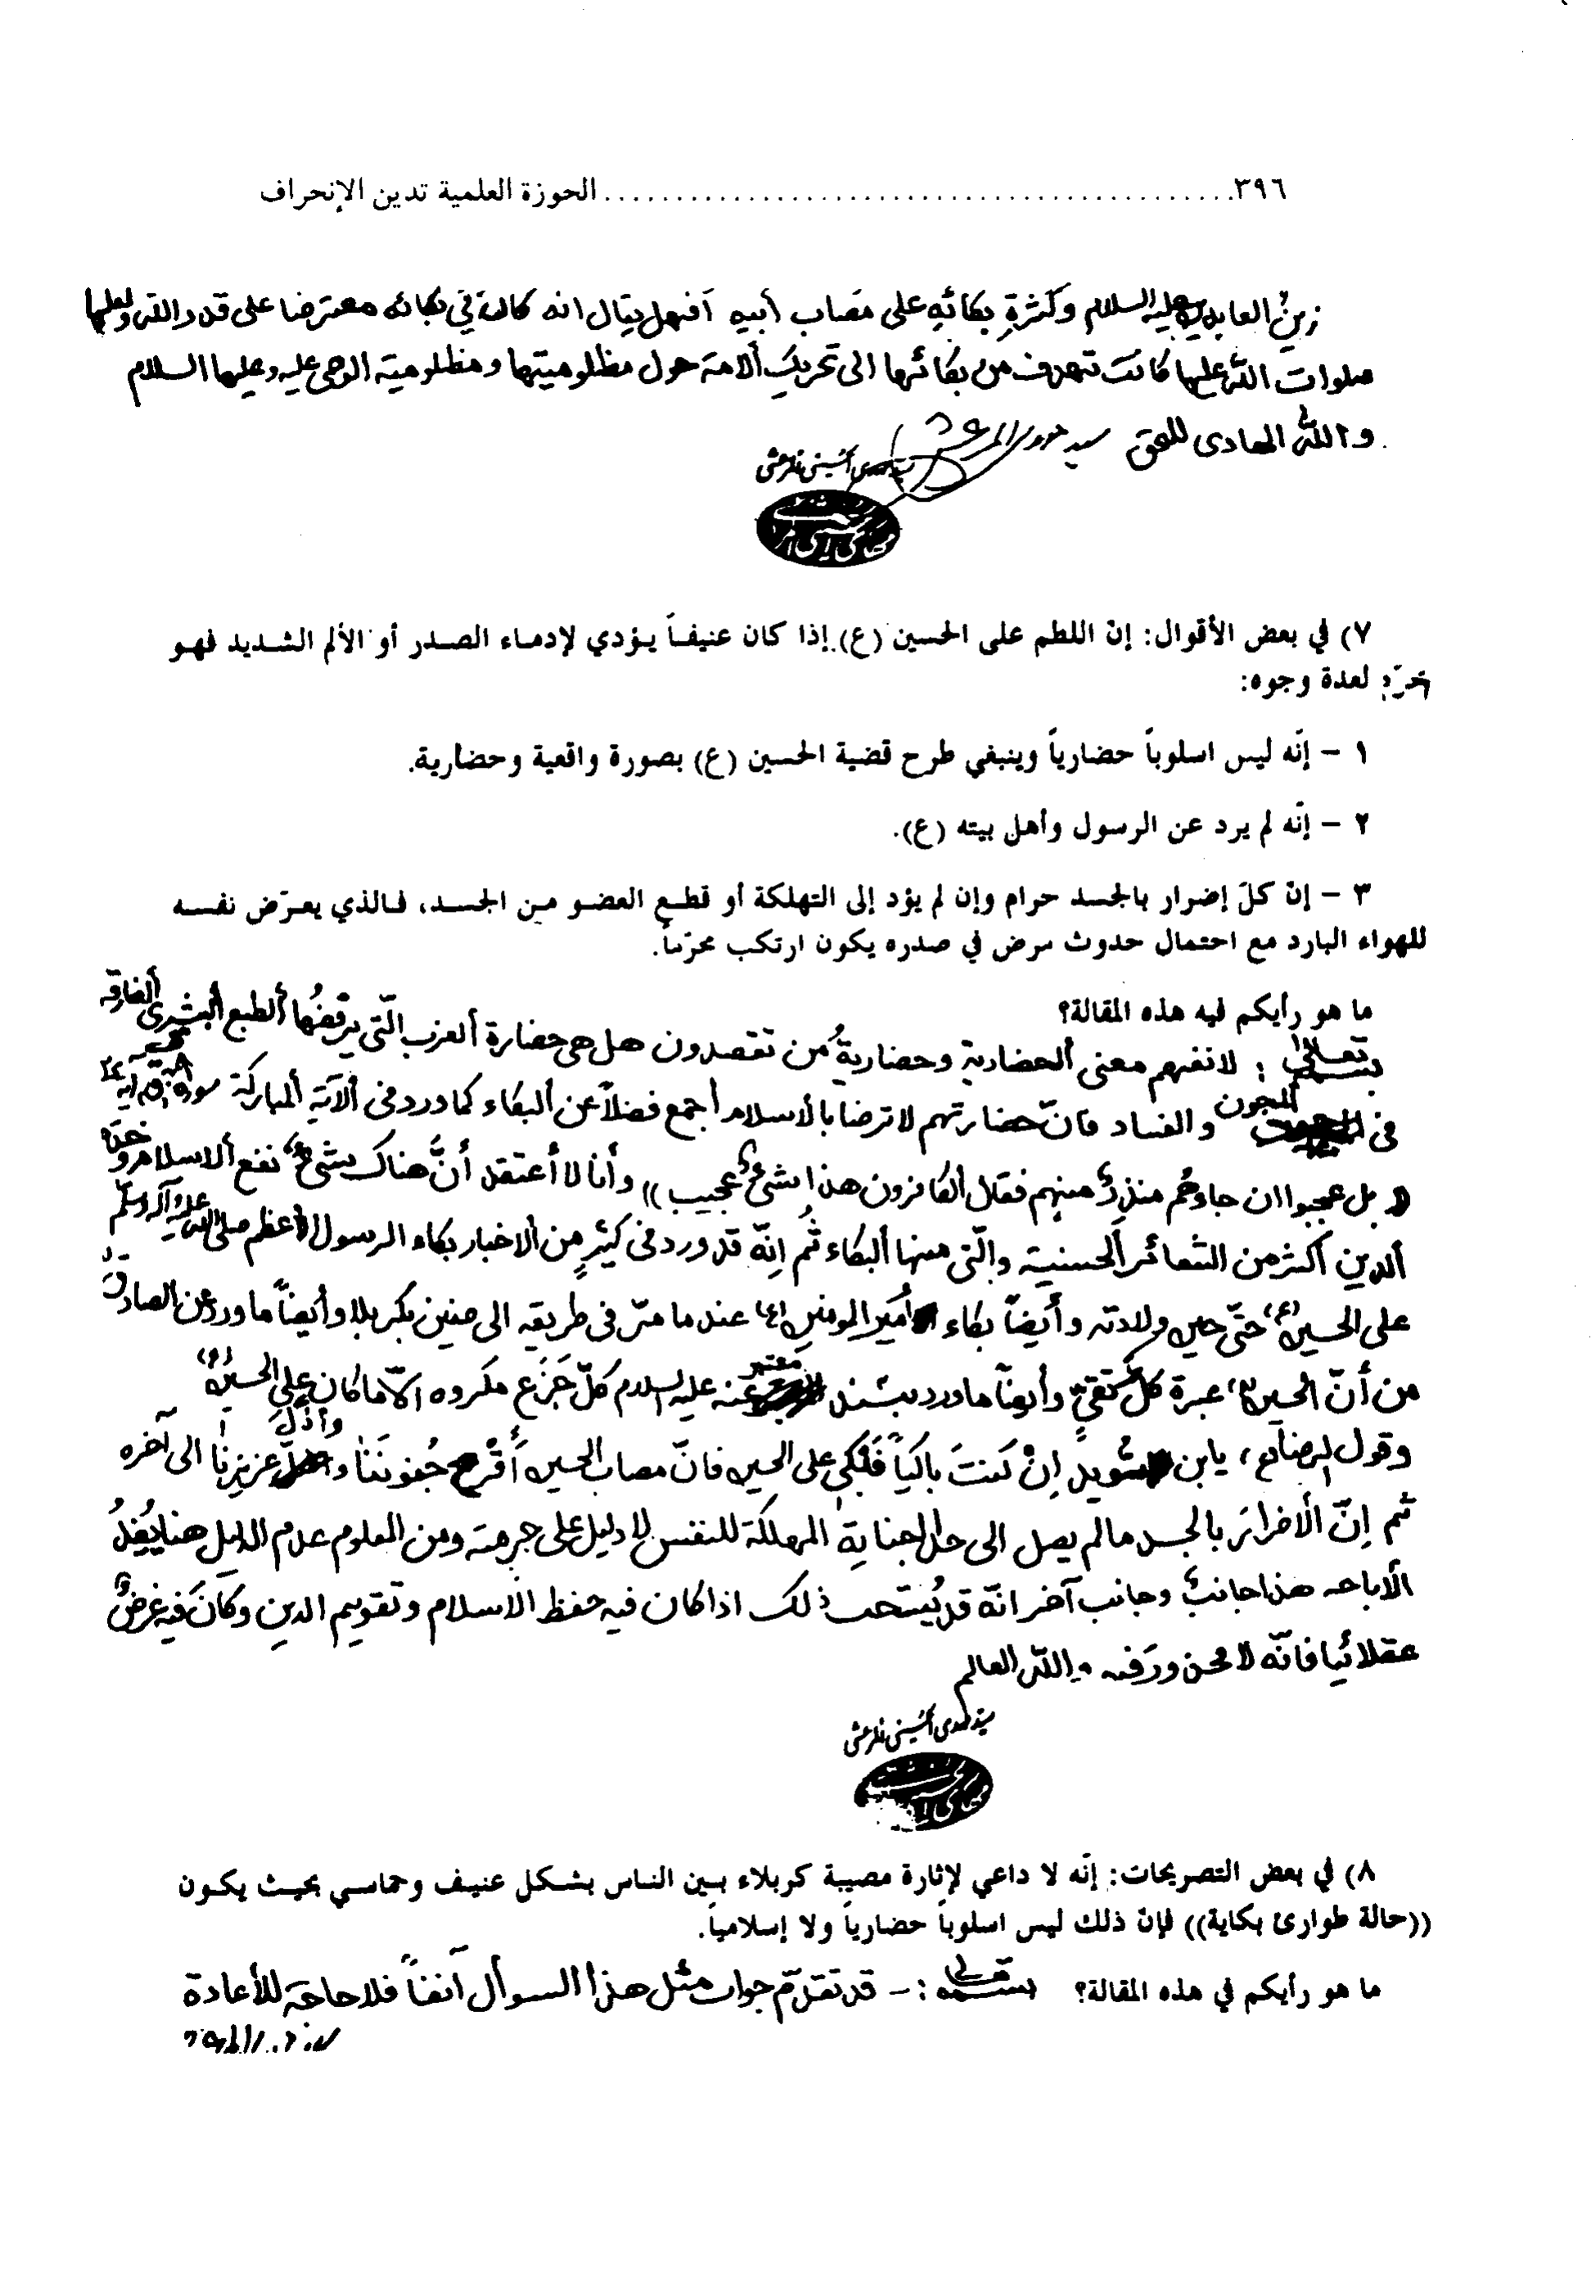 ٣٩٦ ............................................ الحوزة العلمية تدين الإنحراف
زينُ العابدين عليه السلام وكَثرةِ بكائهِ على مصَاب أبيه أفهل يقال انه كان في بكائه معترضا على قدر الله ولعلها
صلوات الله عليها كانت تهدف من بكائها الى تحريك الامة حول مظلوميتها ومظلومية الوصي عليه وعليها السلام
والله الهادى للحق سيد مهدى المرعشي
سيد مهدى الحسيني المرعشي
٧) في بعض الأقوال: إنّ اللطم على الحسين (ع) إذا كان عنيفاً يؤدي لإدماء الصدر أو الألم الشديد فهو
محرّم لعدة وجوه:
١ – إنّه ليس اسلوباً حضارياً وينبغي طرح قضية الحسين (ع) بصورة واقعية وحضارية.
٢ – إنّه لم يرد عن الرسول وأهل بيته (ع).
٣ – إنّ كلّ إضرار بالجسد حرام وإن لم يؤد إلى التهلكة أو قطع العضو من الجسد، فالذي يعرّض نفسه
للهواء البارد مع احتمال حدوث مرض في صدره يكون ارتكب محرّماً.
ما هو رأيكم فيه هذه المقالة؟
بسمه تعالى : لا نفهم معنى ألحضارية وحضاريةُ من تقصدون هل هى حضارة ألغرب الّتي يرفضُها ألطبع ألبشرى الغارقة
فى المجون والفساد فانّ حضارتهم لا ترضا بالأسلام أجمع فضلاً عن ألبكاء كما ورد فى ألآية ألمباركة سورة ق آية
((بل عجبوا ان جاءهم منذرٌ منهم فقال الكافرون هذا شئٌ عجيب)) وأنا لا أعتقد أنَّ هناك شئ نفع ألاسلام وخدم
ألدين أكثر من الشعائر ألحسنية والّتى منها ألبكاء ثُم انّه قد ورد فى كثيرٍ من ألاخبار بكاء الرسول الأعظم صلى الله عليه وآله وسلّم
على الحسين (ع) حتّى حين ولادته وأيضاً بكاء أمير المومنين (ع) عند ما مرّ فى طريقه الى صفين بكربلا وأيضاً ما ورد عن الصادق
من أنّ الحسين (ع) عبرة كلّ تقيٍّ وأيضاً ما ورد بسند معتبر عنه عليه السلام كلّ جَزَع مكروه الاّ ما كان على الحسين (ع)
وقول الرضا (ع) يابن شويد إنْ كنتَ باكياً فَابكى على الحسين فانّ مصاب الحسين أَقْرح جُفونَنا وأذلَّ عزيزنا الى آخره
ثم إنّ الأضرارَ بالجسد ما لم يصل الى حد الجناية المهلكة للنفس لا دليل على حرمته ومن المعلوم عدم الدليل هنا يُفِيدُ
الأباحه هذا جانبٌ وجانب آخر انّه قد يُستَحب ذلك اذا كان فيه حفظ الاسلام وتقويم الدين وكَانَ فيه غرضٌ
عقلائيا فانّه لا محذور فيه والله العالم
سيد مهدى الحسيني المرعشي
٨) في بعض التصريحات: إنّه لا داعي لإثارة مصيبة كربلاء بين الناس بشكل عنيف وحماسي بحيث يكون
((حالة طوارئ بكاية)) فإنّ ذلك ليس اسلوباً حضارياً ولا إسلامياً.
ما هو رأيكم في هذه المقالة؟ بسمه تعالى :– قد تقدّم جواب مثل هذا السوأل آنفاً فلا حاجة للأعادة